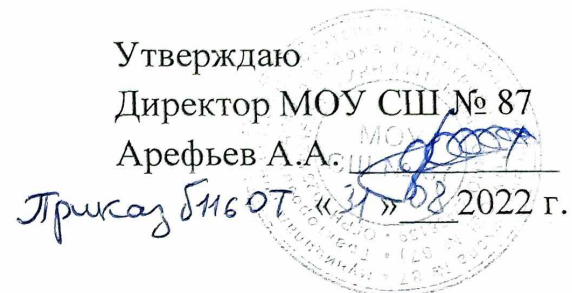 Утверждаю
Директор МОУ СШ № 87
Арефьев А.А.
Приказ «31» 08 2022 г.